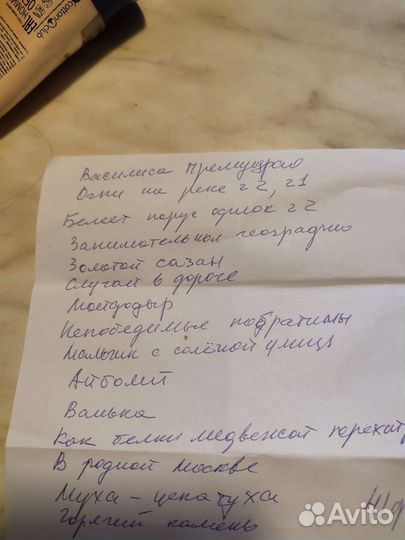 cotton club
EAC
Василиса Премудрая
Огни на реке ч2, ч1
Белеет парус одинок ч2
Занимательная география
Золотой сазан
Случай в дороге
Мойдодыр
Непобедимые побратимы
Мальчик с солёной улицы
Айболит
Ванька
Как белки медвежат
В родной Москве
Муха-цекатуха
Горячий камень
Avito